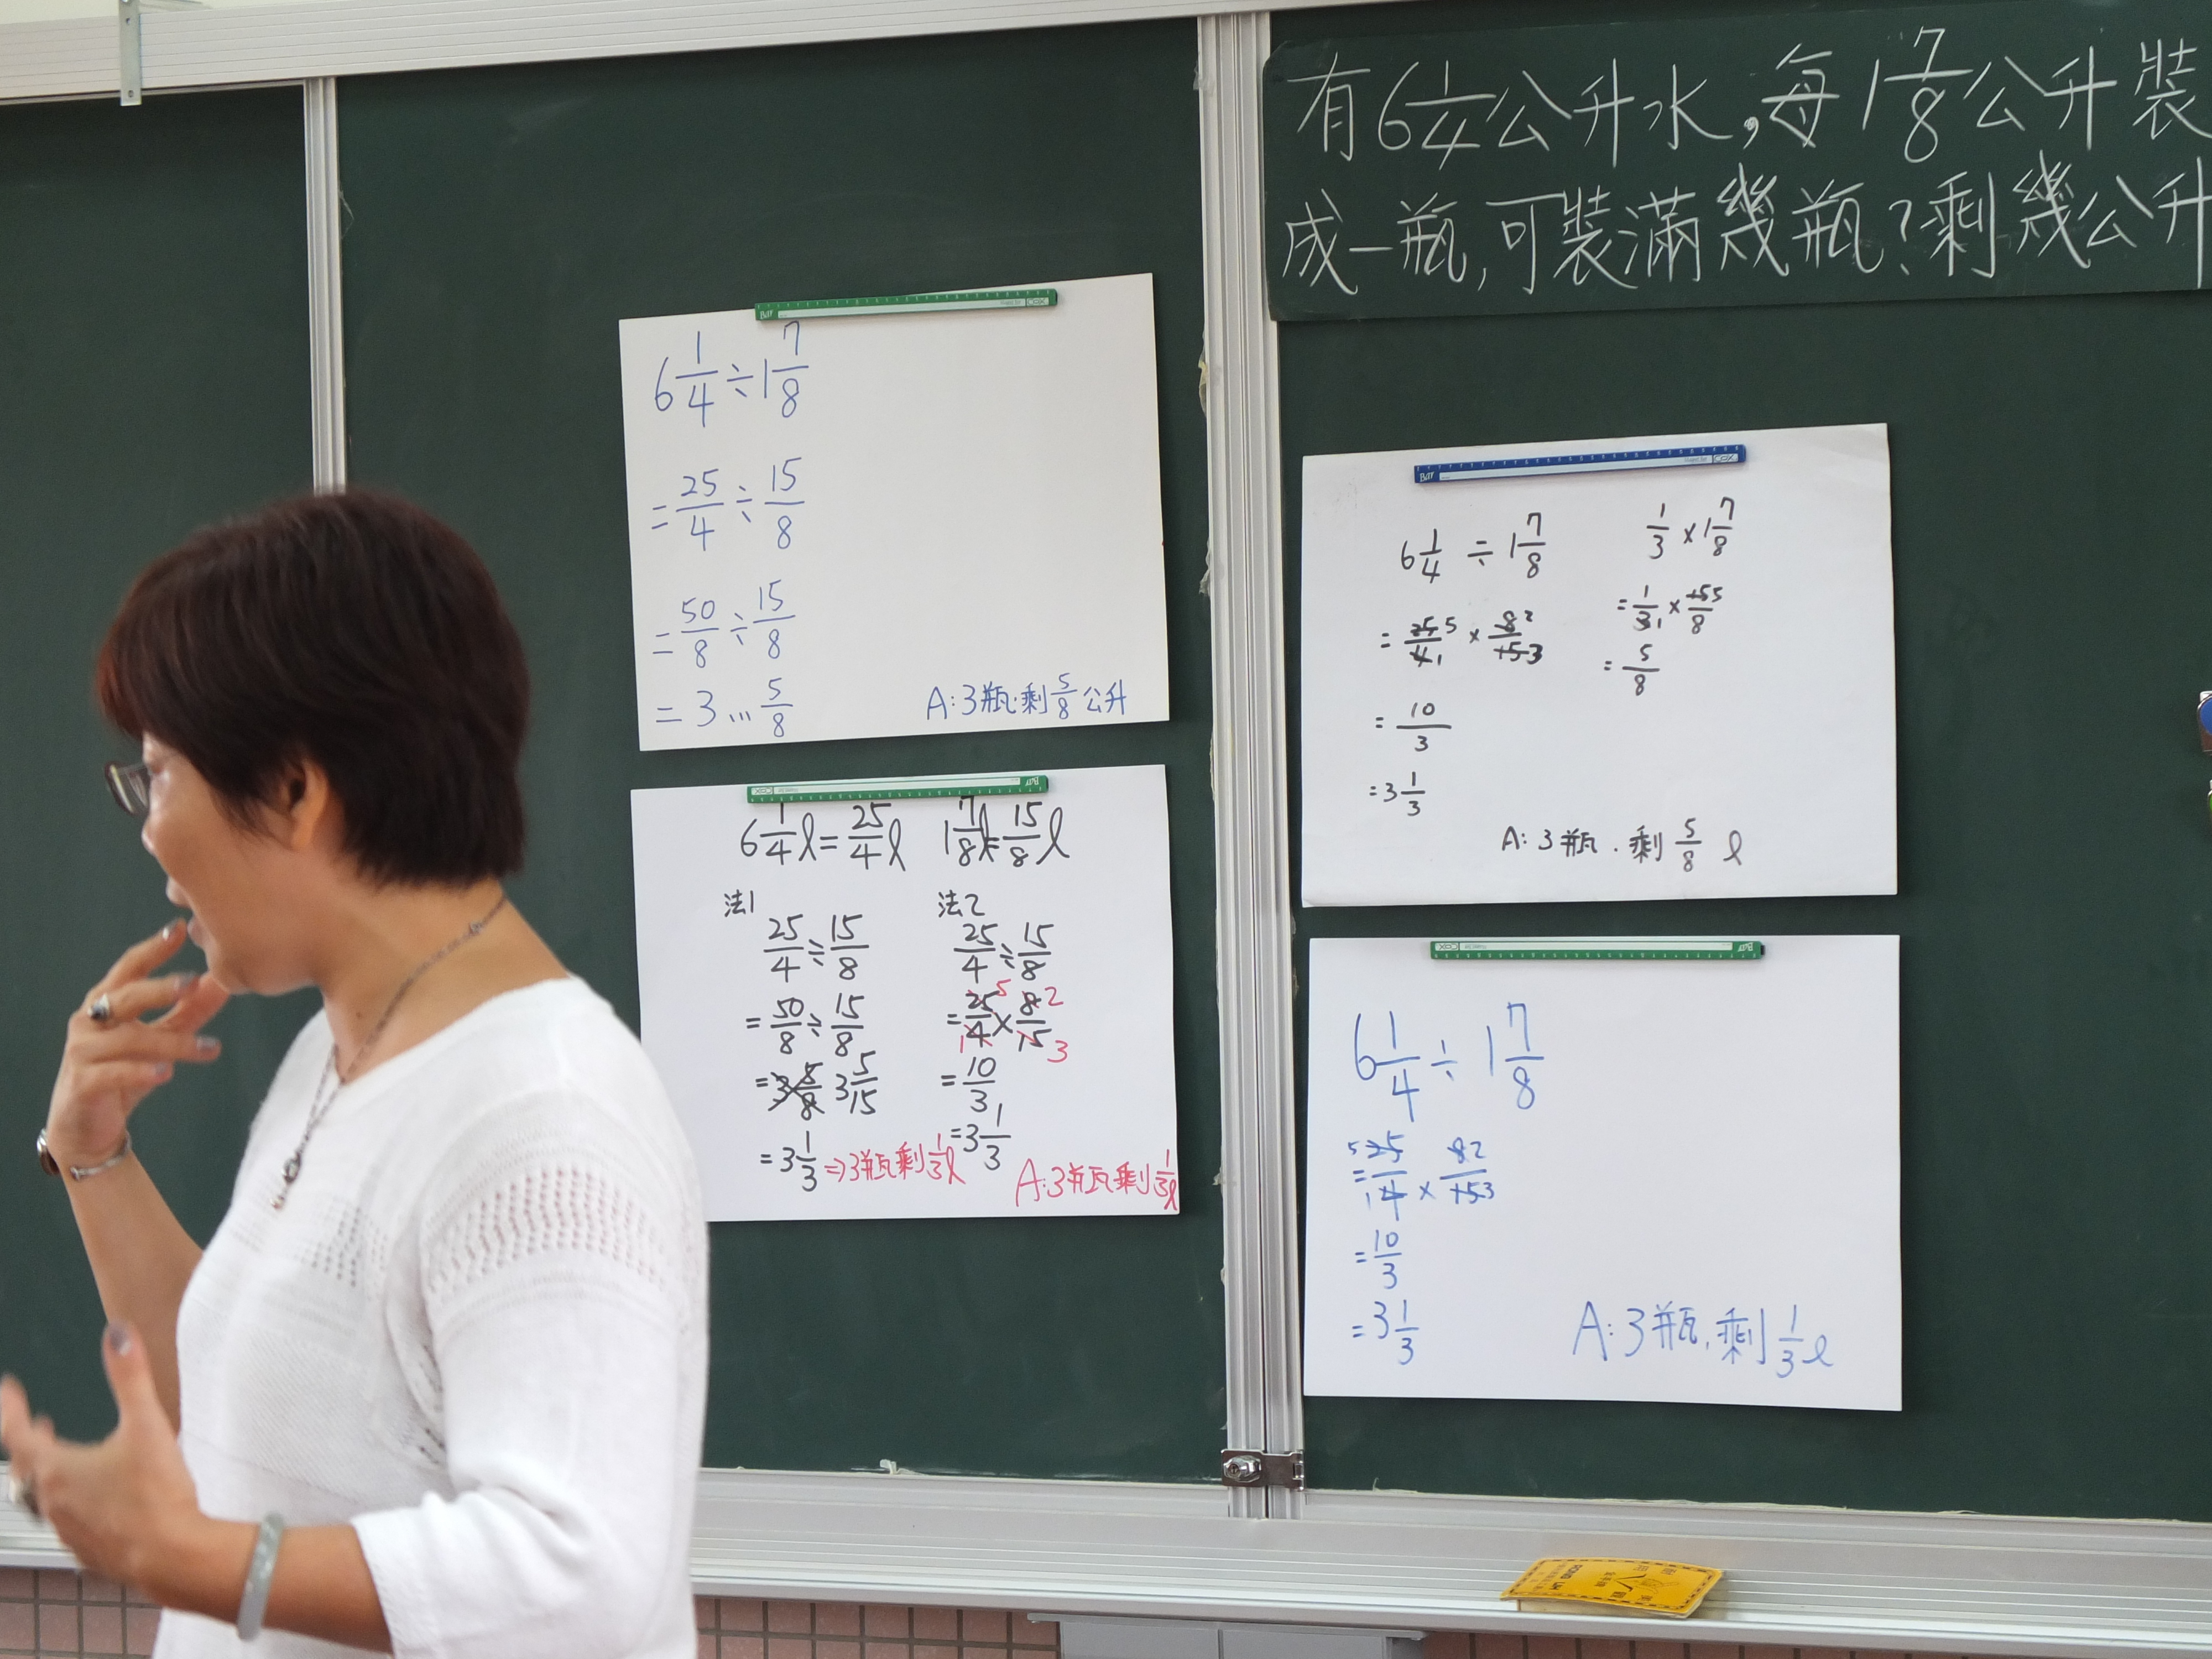 有6 1/4公升水,每1 7/8公升裝
成一瓶,可裝滿幾瓶?剩幾公升
6 1/4÷1 7/8
=25/4÷15/8
=50/8÷15/8
=3…5/8
A:3瓶.剩5/8公升
6 1/4ℓ=25/4ℓ 1 7/8ℓ=15/8ℓ
法1
25/4÷15/8
=50/8÷15/8
=3 5/8 3 5/15
=3 1/3⇒3瓶剩1/3ℓ
法2
25/4÷15/8
=25/4 5 1×8/15 2 3
=10/3
=3 1/3
A:3瓶剩1/3ℓ
6 1/4÷1 7/8
=25/4 5 1×8/15 2 3
=10/3
=3 1/3
1/3×1 7/8
=1/3 1×15/8 5
=5/8
A:3瓶.剩5/8 ℓ
6 1/4÷1 7/8
=25/4 5 1×8/15 2 3
=10/3
=3 1/3
A:3瓶.剩1/3ℓ